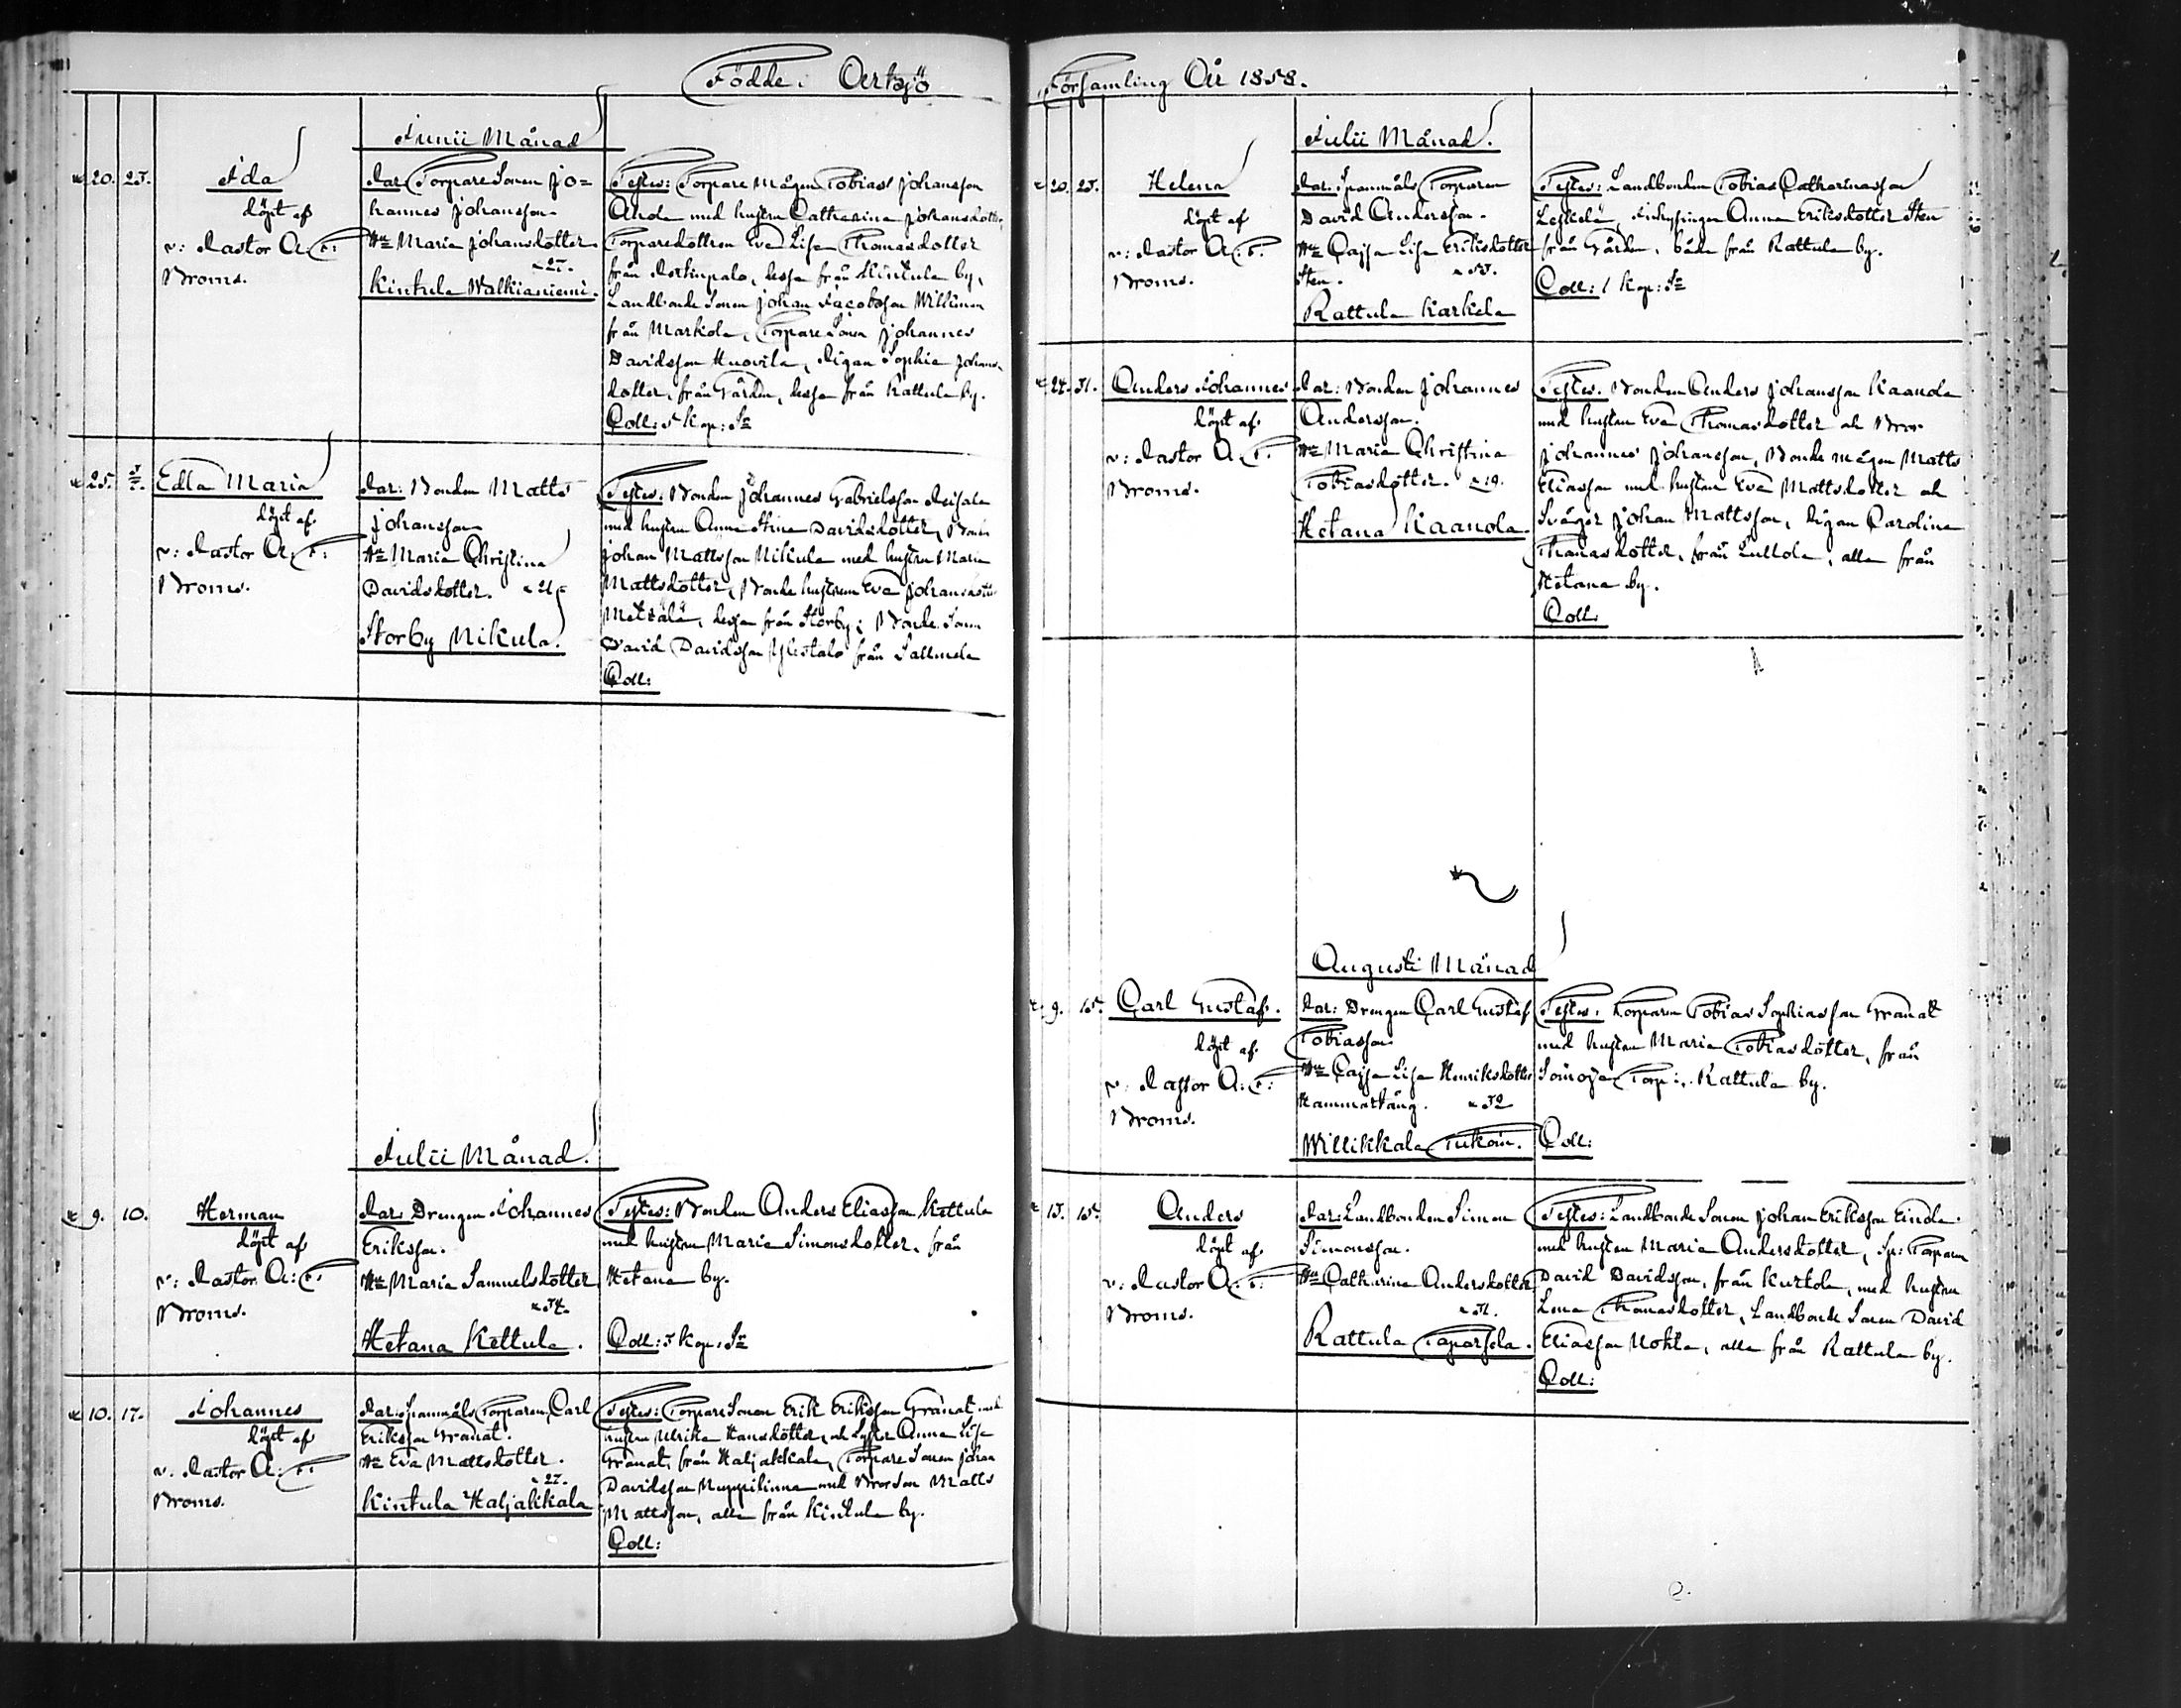 Födde i Artsjö
Junii Månad
20. 23. Ida
döpt af
v: Pastor A: F:
Broms.
Par: Torpare Sonen Jo=
hannes Johansson
Hu Maria Johansdotter
27.
Kintula Walkianiemi.
Testes: Torpare mågen Tobias Johansson
med hustru Catharina Johansdotter,
Torparedottren Eva Lisa Thomasdotter
från dessa från Kintula by,
Landbonde Sonen Johan Jacobsson Willman
från Markola, Torpare Sonen Johannes
Davidsson Huovila, Pigan Sophia Johans-
dotter, från Gården, dessa från Rattula by.
Coll: 5 Kop: Sr
25. Edla Maria
döpt af
v: Pastor A: F:
Broms.
Par: Bonden Matts
Johansson
Hu Maria Christina
Davidsdotter.
Storby Nikula.
Testes: Bonden Johannes Gabrielsson
med hustru Anna Stina Davidsdotter, Bonden
Johan Mattsson Nikula med hustru Maria
Mattsdotter, Bonde hustrun Eva Johansdotter
Metsälä, dessa från Storby; Bonde Sonen
David Davidsson Ylöstalo från Salmela
Coll:
Julii Månad.
9. 10. Herman
döpt af
v: Pastor A: F:
Broms.
Par: Drengen Johannes
Eriksson.
Hu Maria Samuelsdotter
34.
Hetana Kettula.
Testes: Bonden Anders Eliasson Kettula
med hustru Maria Simonsdotter, från
Hetana by.
Coll: 3 Kop: Sr
10. 17. Johannes
döpt af
v: Pastor A: F:
Broms.
Par: Spannmåls Torparen Carl
Eriksson Granat.
Hu Eva Mattsdotter.
27.
Kintula Haljakkala
Testes: Torpare Sonen Erik Eriksson Granat med
hustru Ulrika Hansdotter, och Syster Anna Lisa
Granat, från Haljakkala, Torpare Sonen Johan
Davidsson Nuppilinna med Brorson Matts
Mattsson, alla från Kintula by.
Coll:
Församling År 1858.
Julii Månad.
20. 25. Helena
döpt af
v: Pastor A: F:
Broms.
Par: Spannmåls Torparen
David Andersson.
Hu Cajsa Lisa Eriksdotter
Sten.
Rattula Karkela
Testes: Landbonden Tobias Catharinasson
Leskelä, Anna Eriksdotter Sten
från Gården, både från Rattula by.
Coll: 1 Kop: Sr
24. 31. Anders Johannes
döpt af
v: Pastor A: F:
Broms.
Par: Bonden Johannes
Andersson.
Hu Maria Christina
Tobiasdotter. 19.
Hetana Kaanola.
Testes. Bonden Anders Johansson Kaanola
med hustru Eva Thomasdotter och Bror
Johannes Johansson, Bonde mågen Matts
Eliasson med hustru Eva Mattsdotter och
Svåger Johan Mattsson, Pigan Carolina
Thomasdotter, från alla från
Hetana by.
Coll.
Augusti Månad
9. 15. Carl Gustaf.
döpt af
v: Pastor A: F:
Broms.
Par: Drengen Carl Gustaf
Tobiasson
Hu Cajsa Lisa Henriksdotter
Hammartång.
Willikkala
Testes. Torparen Tobias Sophiasson Granat
med hustru Maria Tobiasdotter, från
Torp: Rattula by.
Coll:
13. 15. Anders
döpt af
v: Pastor A: F:
Broms.
Par: Landbonden Simon
Simonsson.
Hu Catharina Andersdotter
31.
Rattula Taparsela.
Testes: Landbonde Sonen Johan Eriksson Eindo
med hustru Maria Andersdotter, Sp: Torparen
David Davidsson, från Kurtola, med hustru
Lena Thomasdotter, Landbonde Sonen David
Eliasson Uotila, alla från Rattula by.
Coll: